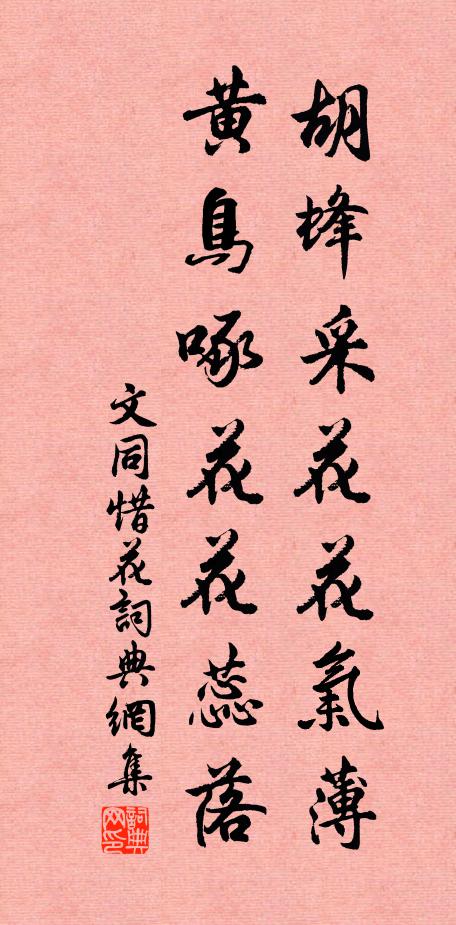 胡蜂采花花氣薄
黃鳥啄花花蕊落
文同惜花詞典網集
詞典
网印